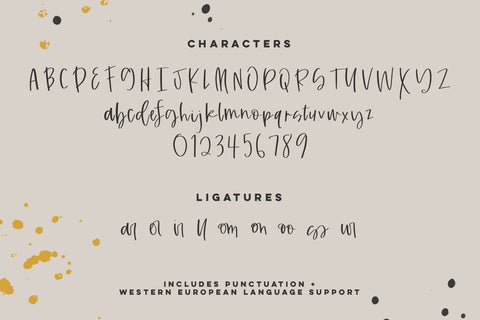 CHARACTERS
ABCDEFGHIJKLMNOPQRSTUVWXYZ
abcdefghijklmnopqrstuvwxyz
0123456789
LIGATURES
ar er ir ll om on oo os ur
INCLUDES PUNCTUATION +
WESTERN EUROPEAN LANGUAGE SUPPORT